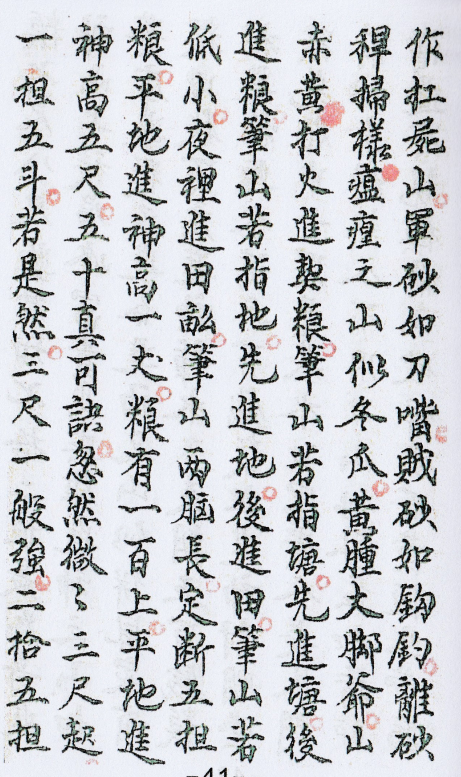 作扛屍山軍砂如刀嘴賊砂如鈎鈎離砂
稈掃樣瘟㾮之山似冬瓜黃腫大脚爺山
赤黃打火進契粮筆山若指塘先進塘後
進粮筆山若指地先進地後進田筆山若
低小夜裡進田畝筆山两脑長定断五担
粮平地進神高一丈粮有一百上平地進
神高五尺五十真可訣忽然微〻三尺起
一担五斗若是然三尺一般強二拾五担
-41